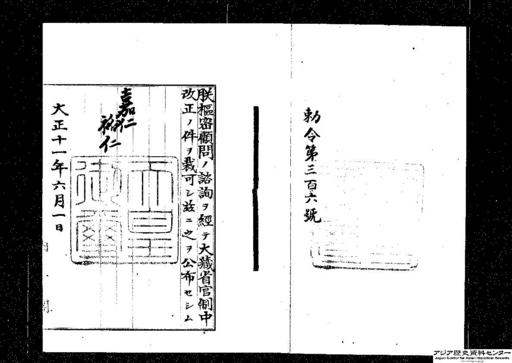 勅令第三百六號
朕樞密顧問ノ諮詢ヲ經テ大藏省官制中
改正ノ件ヲ裁可シ玆ニ之ヲ公布セシム
嘉仁
裕仁
天皇
御璽
大正十一年六月一日
アジア歴史資料センター
Japan Center for Asian Historical Records